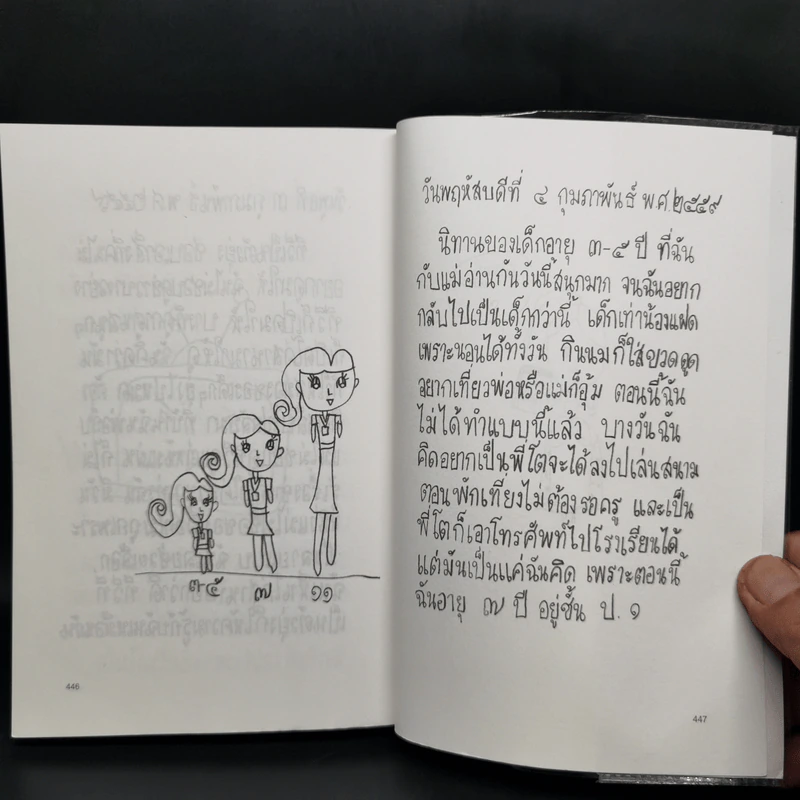 ๓-๕
๗
๑๑
446
วันพฤหัสบดีที่ ๔ กุมภาพันธ์ พ.ศ.๒๕๕๙
นิทานของเด็กอายุ ๓-๕ ปี ที่ฉัน
กับแม่อ่านกันวันนี้สนุกมาก จนฉันอยาก
กลับไปเป็นเด็กกว่านี้ เด็กเท่าน้องแฝด
เพราะนอนได้ทั้งวัน กินนมก็ใส่ขวดดูด
อยากเที่ยวพ่อหรือแม่ก็อุ้ม ตอนนี้ฉัน
ไม่ได้ทำแบบนี้แล้ว บางวันฉัน
คิดอยากเป็นพี่โตจะได้ลงไปเล่นสนาม
ตอนพักเที่ยงไม่ต้องรอครู และเป็น
พี่โตก็เอาโทรศัพท์ไปโรงเรียนได้
แต่มันเป็นแค่ฉันคิด เพราะตอนนี้
ฉันอายุ ๗ ปี อยู่ชั้น ป.๑
447